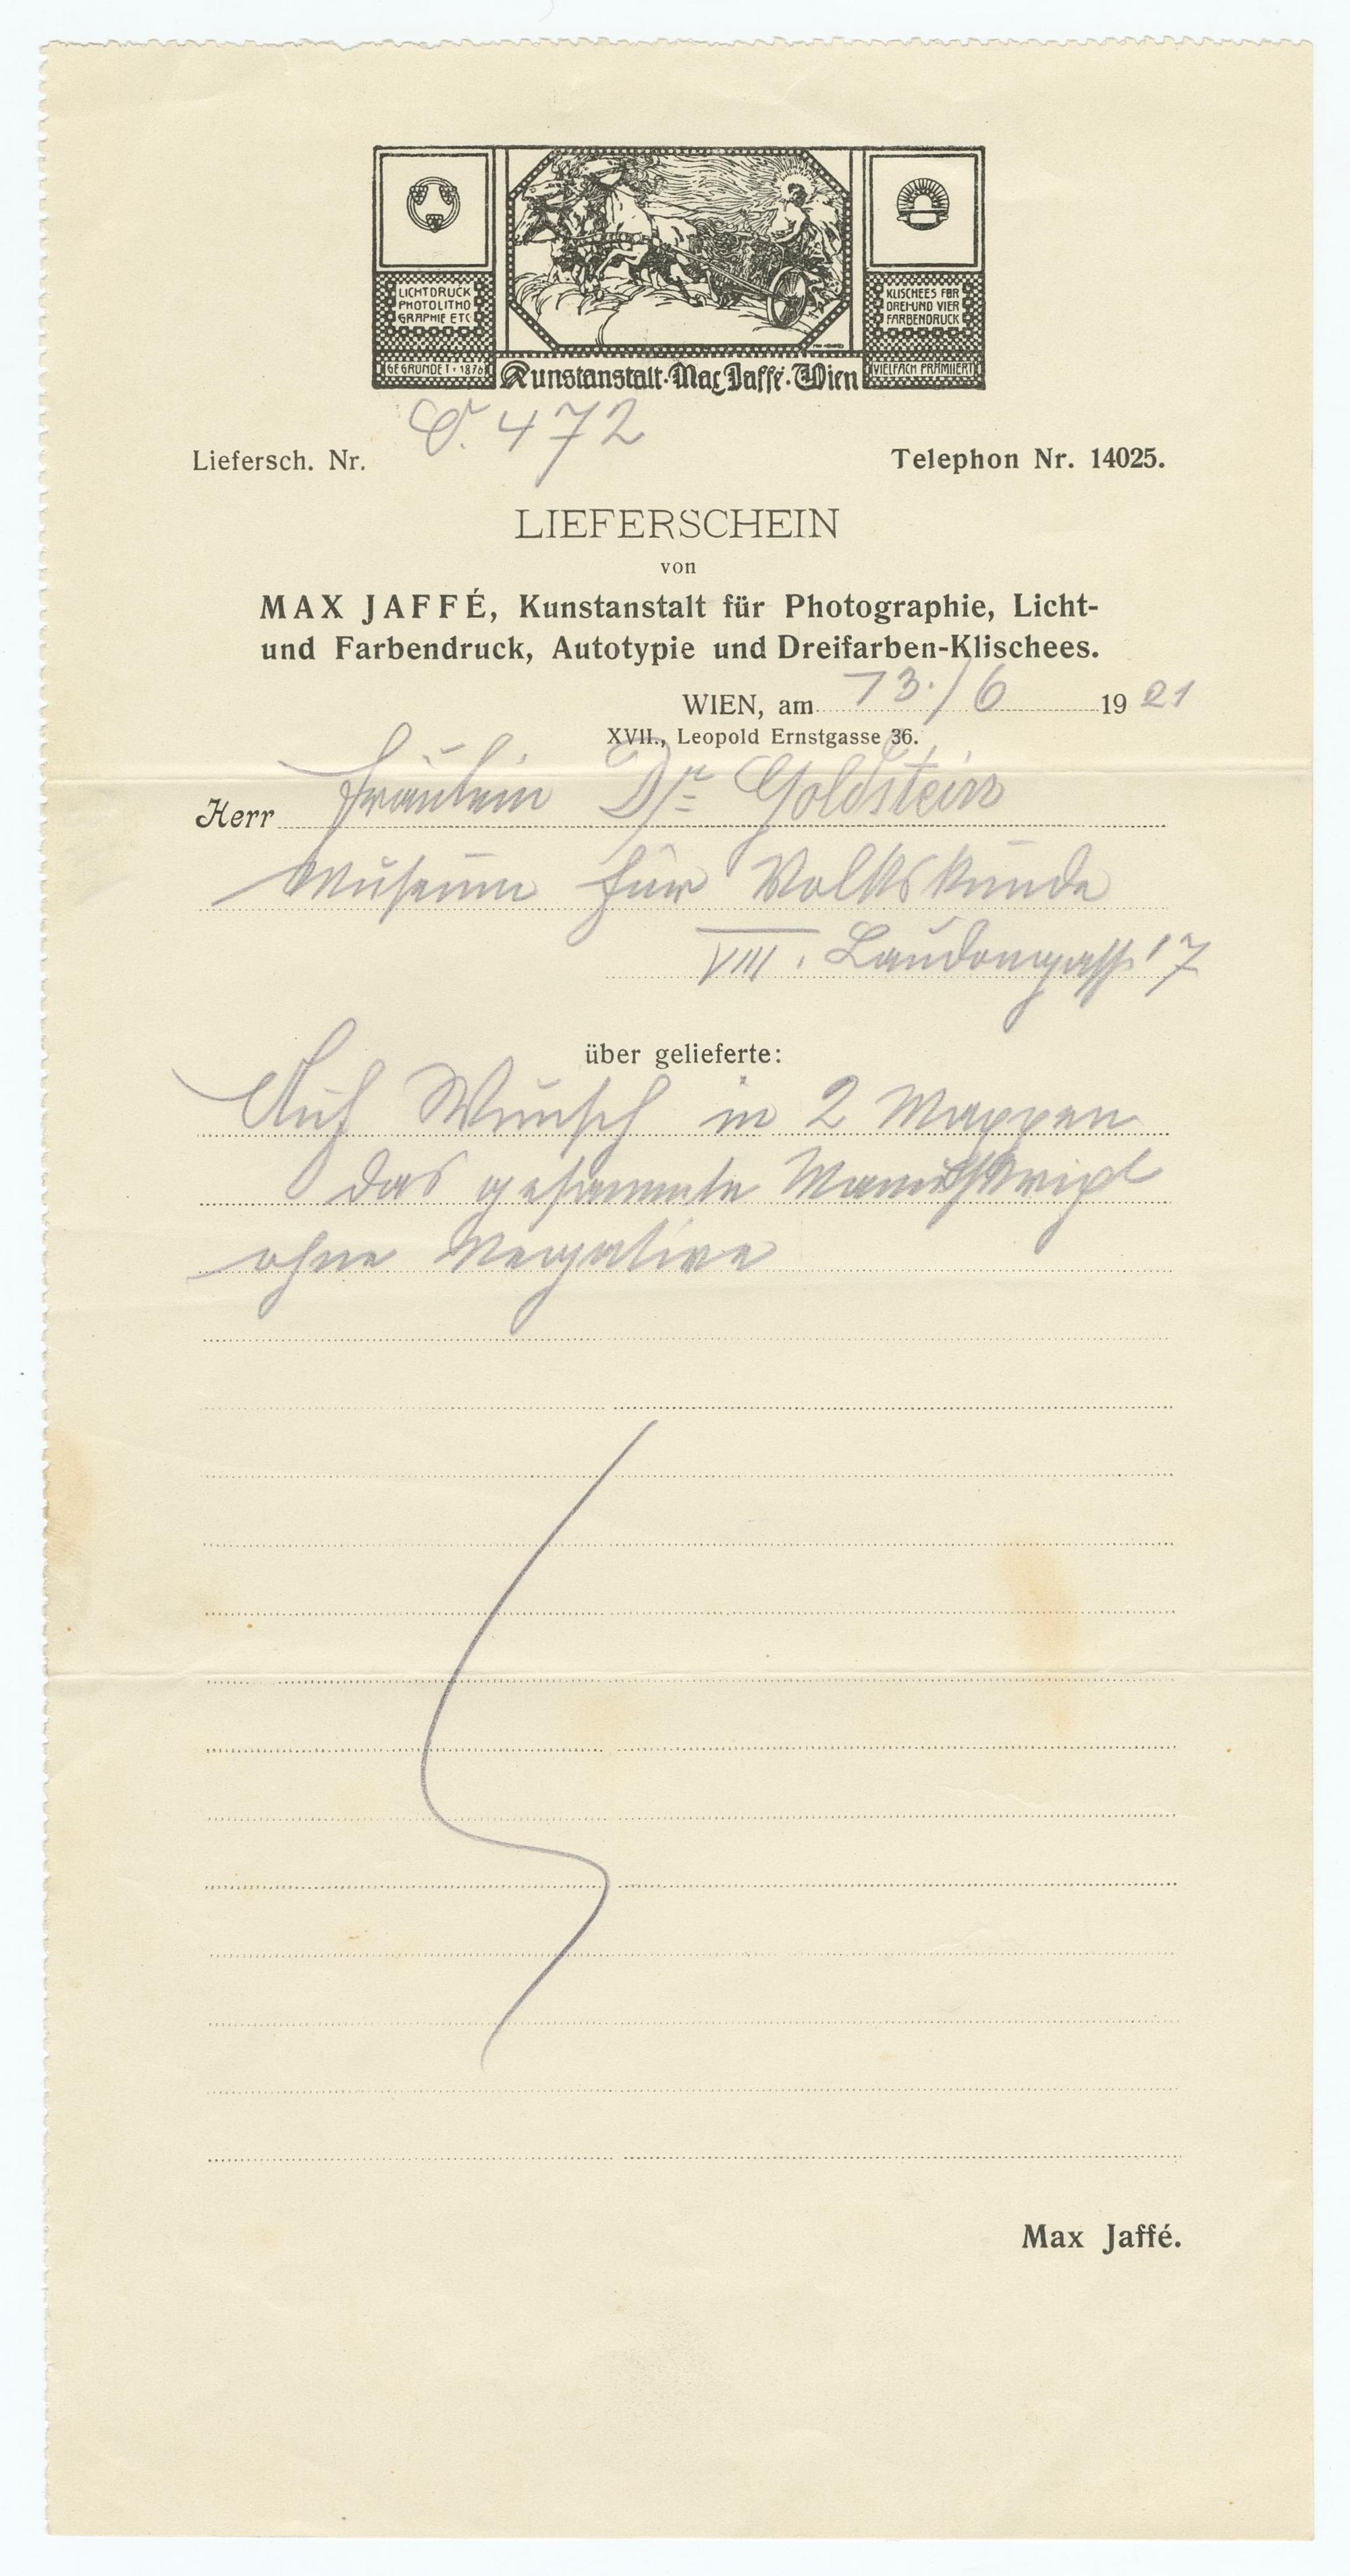 LICHTDRUCK
PHOTOLITHO
GRAPHIE ETC
GEGRÜNDET · 1876
KLISCHEES FÜR
DREI-UND VIER
FARBENDRUCK
VIELFACH PRÄMIIERT
Kunstanstalt · Max Jaffé · Wien
472
Liefersch. Nr.
Telephon Nr. 14025.
LIEFERSCHEIN
von
MAX JAFFÉ, Kunstanstalt für Photographie, Licht-
und Farbendruck, Autotypie und Dreifarben-Klischees.
WIEN, am 13./6 1921
XVII., Leopold Ernstgasse 36.
Herr Fräulein Dr. Goldstein
Museum für Volkskunde
VIII. Laudongasse 17
über gelieferte:
Auf Wunsch in 2 Mappen
das gesammte Manuskript
ohne Negative
Max Jaffé.